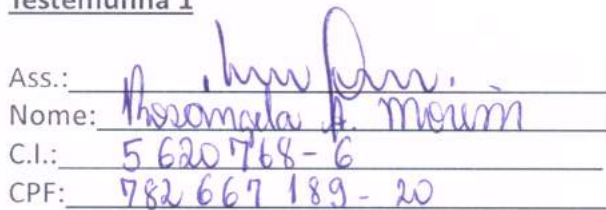 Testemunha 1
Ass.:
Nome: Rosangela A. Morim
C.I.: 5 620 768 - 6
CPF: 782 667 189 - 20